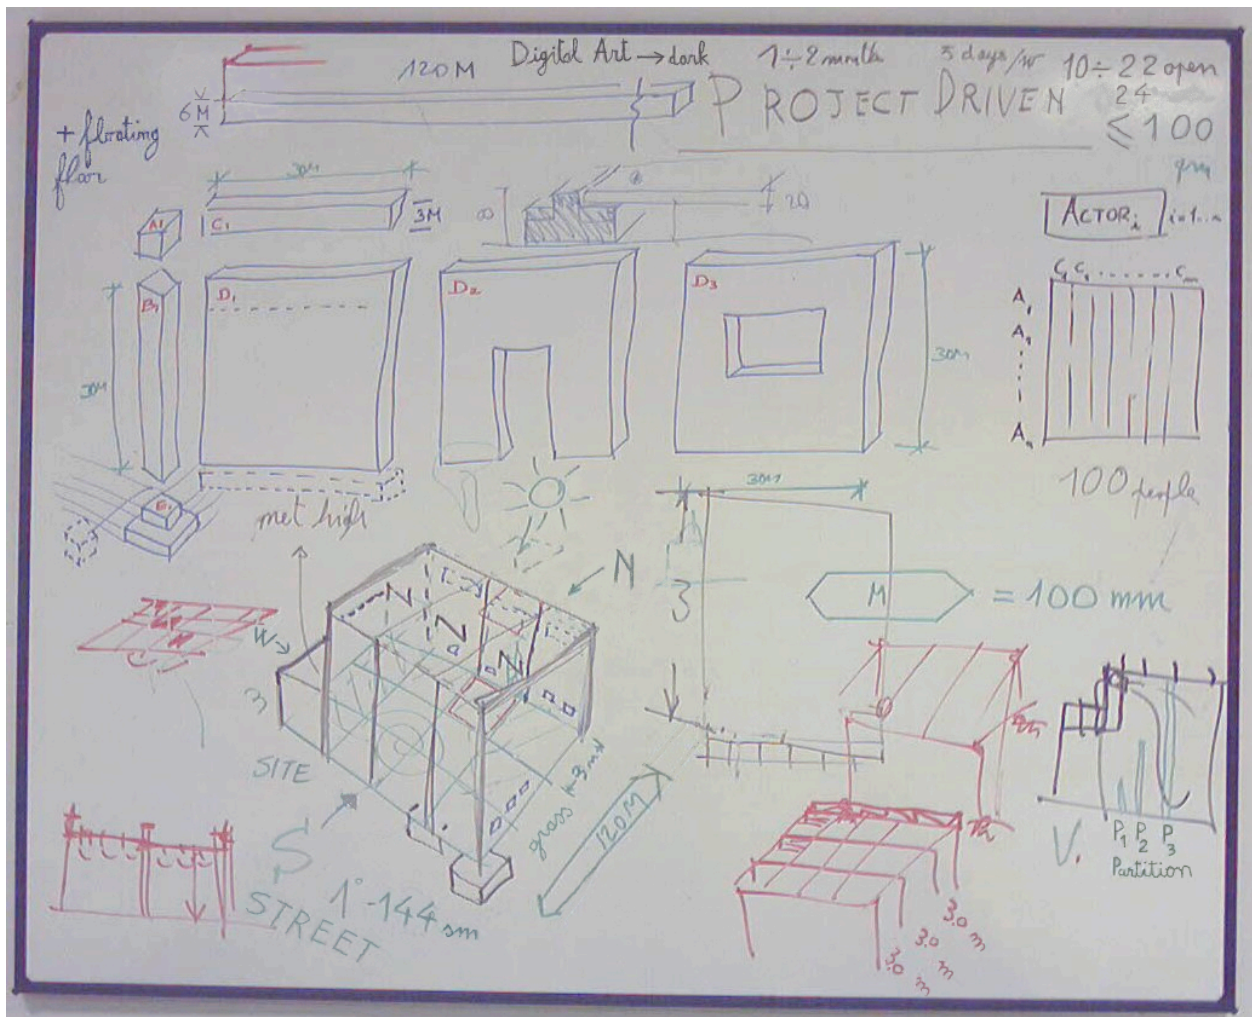 Digital Art → dark
1÷2 month
5 days/w
10÷22 open
24
≤ 100
120M
PROJECT DRIVEN
6M
+ floating
floor
30M
3M
A1
C1
8
20
ACTOR i
i=1...n
B1
D1
D2
D3
A1
A2
An
30M
30M
100 people
E1
met high
30M
N
M = 100 mm
3
W
N
Z
Z
3
SITE
grass
120M
S
STREET
1° -144 sm
3.0 m
3.0 m
3.0 m
V.
P1 P2 P3
Partition